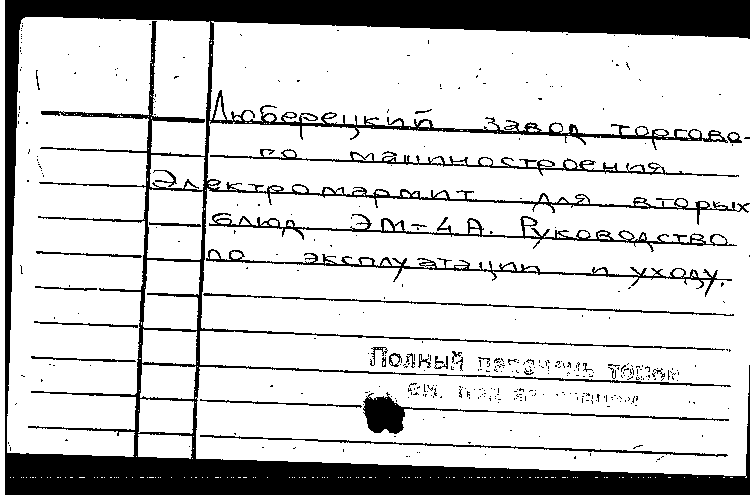 Люберецкий завод торгово-
го машиностроения.
Электромармит для вторых
блюд ЭМ-4А. Руководство
по эксплуатации и уходу.
Полный
см. под